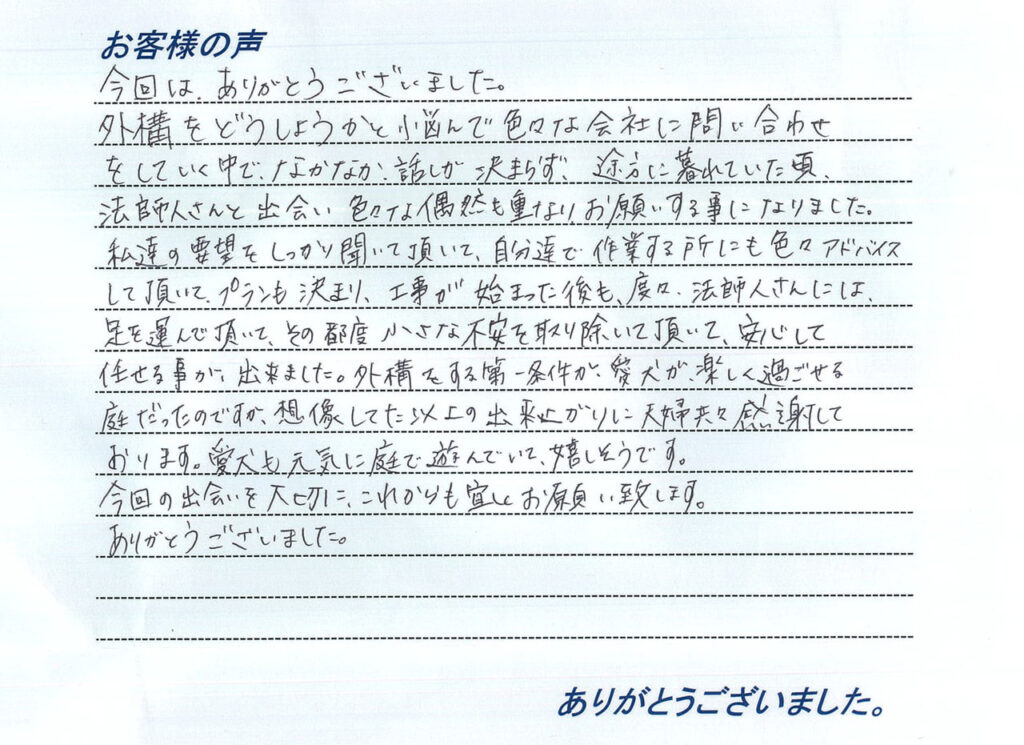 お客様の声
今回は、ありがとうございました。
外構をどうしようかと小悩んで色々な会社に問い合わせ
をしていく中で、なかなか、話しが決まらず、途方に暮れていた頃、
法師人さんと出会い色々な偶然も重なりお願いする事になりました。
私達の要望をしっかり聞いて頂いて、自分達で作業する所にも色々アドバイス
して頂いて、プランも決まり、工事が始まった後も、度々、法師人さんには、
足を運んで頂いて、その都度小さな不安を取り除いて頂いて、安心して
任せる事が、出来ました。外構をする第一条件が、愛犬が、楽しく過ごせる
庭だったのですが、想像してた以上の出来上がりに夫婦共々感謝して
おります。愛犬も元気に庭で遊んでいて、嬉しそうです。
今回の出会いを大切に、これからも宜しくお願い致します。
ありがとうございました。
ありがとうございました。